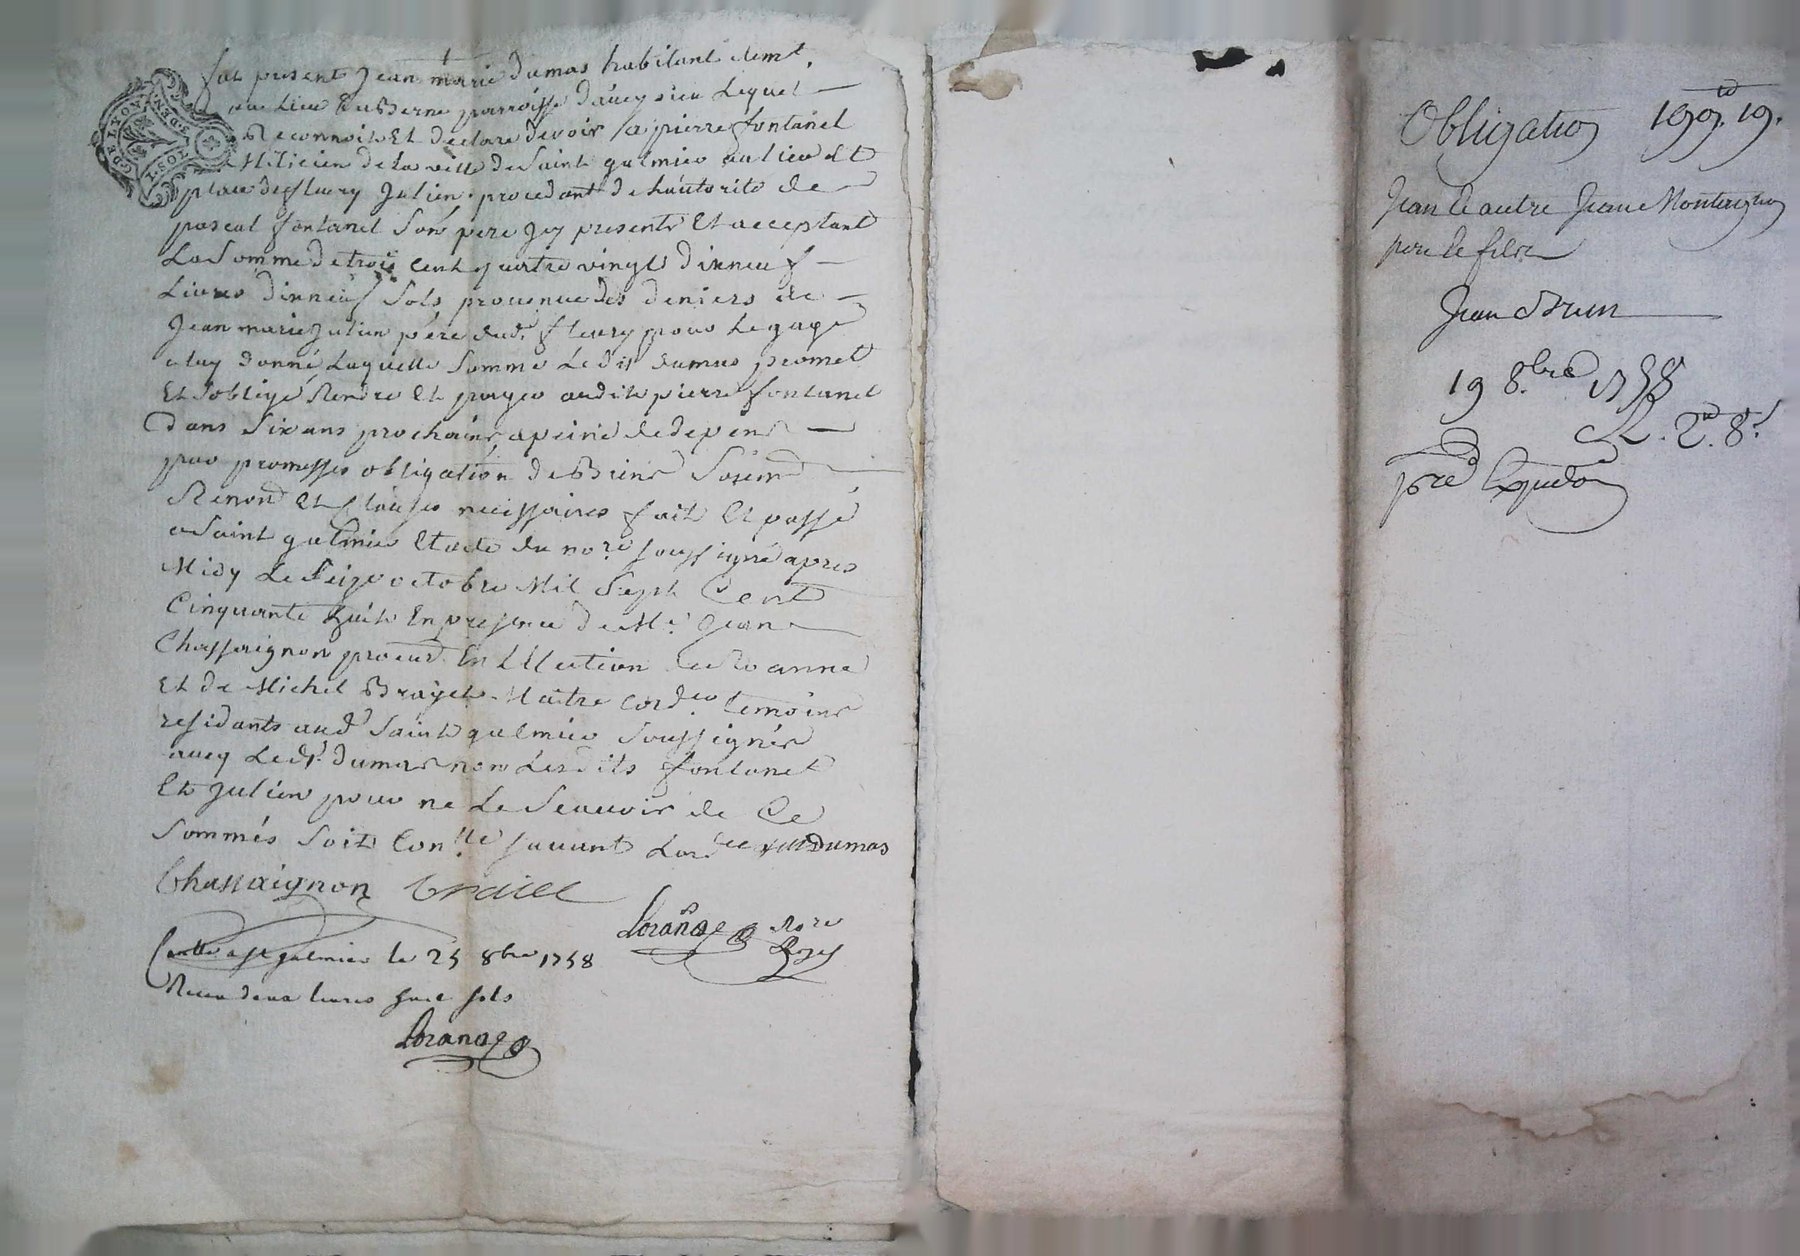 fut present Jean marie Dumas habitant dem.t
au Lieu du Berne parroisse daveysieu Lequel
Reconnoit Et declare devoir a pierre fontanel
Milicien de La ville de Saint galmier au lieu Et
place de fleury Julien procedant de Lautorité de
pascal fontanel Son pere Jcy present Et acceptant
La Somme de trois cent quatre vingts dixneuf
Livres dixneuf Sols provenue des deniers de
Jean marie Julien pere dud.t fleury pour Legage
a luy donné Laquelle Somme Ledit dumas promet
Et Soblige Rendre Et payer audit pierre fontanel
dans Six ans prochains, apeine de depens
par promesses obligation de Biens Soumi
Renond Et Clauses necessaires fait Et passé
a Saint galmier Etude du no.re soussigné apres
Midy Le Seize octobre Mil Sept Cent
Cinquante huit En presence de M.e Jean
Chassaignon procur En LElection de Roanne
Et de Michel Brayet Maitre Cord.er temoins
residants aud Saint galmier Soussignés
avec Led.t dumas non Lesdits fontanel
Et Julien pour ne Le Scavoir de Ce
Sommés Soit Con.lle suivant Lord.ce Dumas
Chassaignon Braiel
Loranage No.re
Royal
Con.lle a St galmier le 25 8bre 1758
Receu deux livres huit sols
Loranage
Obligation 199.19.
Jean Montaignon
pere le fils
Jean Brun
19 8.bre 1758
2 8.s